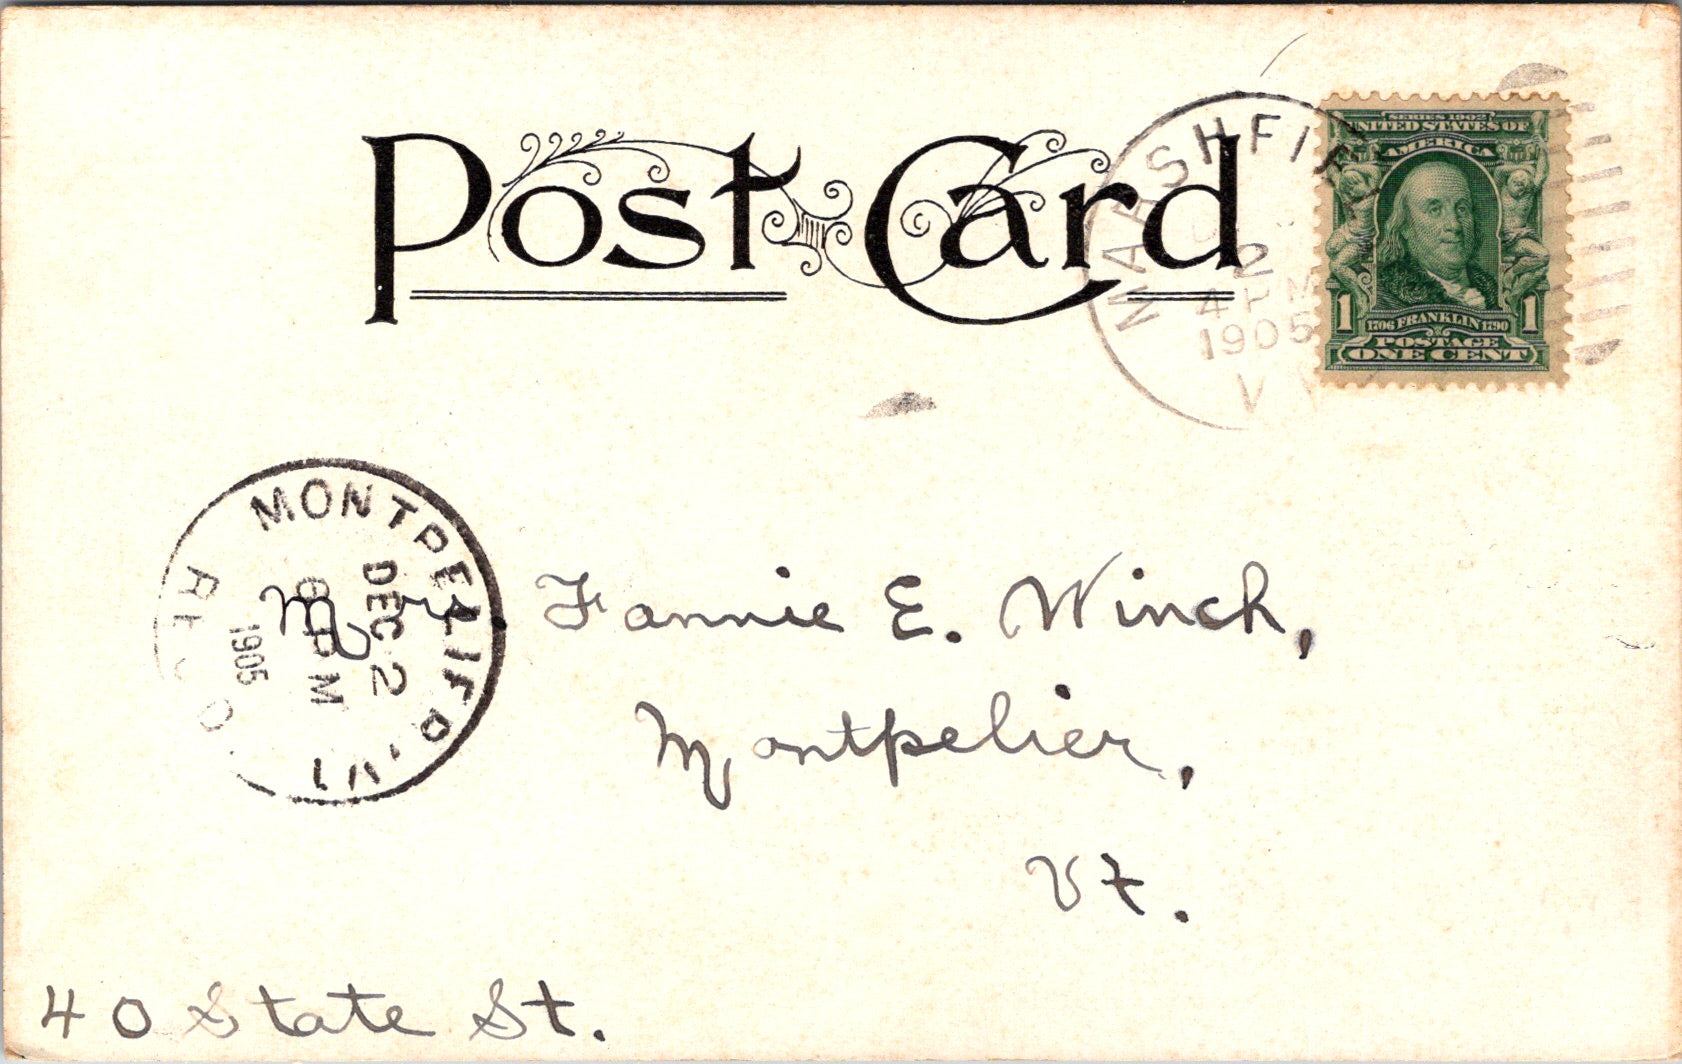 Post Card
MARSHFIEL
2
4 PM
1905
V
SERIES 1902
UNITED STATES OF
AMERICA
1 1706 FRANKLIN 1790 1
POSTAGE
ONE CENT
MONTPELIER, VT
DEC 2
6 PM
1905
REC'D.
Mrs. Fannie E. Winch,
Montpelier,
Vt.
40 State St.